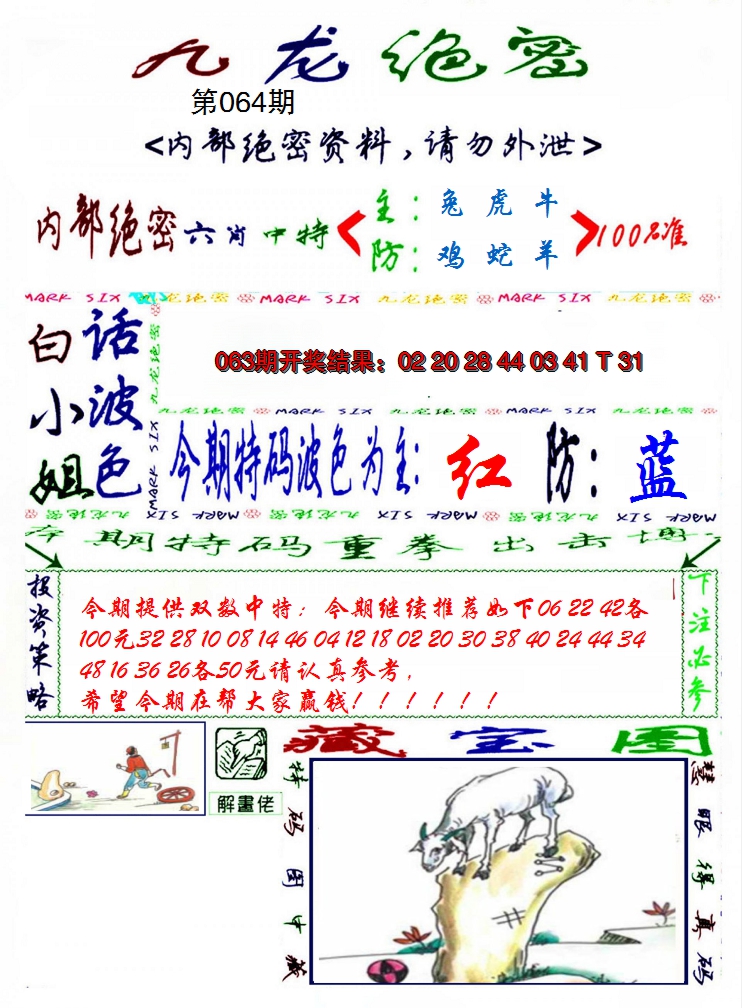 九龙绝密
第064期
<内部绝密资料,请勿外泄>
内部绝密六肖中特
主:兔 虎 牛
防:鸡 蛇 羊
100%准
MARK SIX 九龙绝密 MARK SIX 九龙绝密 MARK SIX 九龙绝密
白小姐
话波色
九龙绝密 MARK SIX
063期开奖结果:02 20 28 44 03 41 T 31
九龙绝密 MARK SIX 九龙绝密 MARK SIX 九龙绝密
今期特码波色为主:红 防:蓝
九龙绝密 MARK SIX 九龙绝密 MARK SIX 九龙绝密 MARK SIX
本期特码重拳出击博
投资策略
今期提供双数中特:今期继续推荐如下06 22 42各
100元32 28 10 08 14 46 04 12 18 02 20 30 38 40 24 44 34
48 16 36 26各50元请认真参考,
希望今期在帮大家赢钱!!!!!!
下注必参
解畫佬
藏宝图
特码图中藏
慧眼得真码